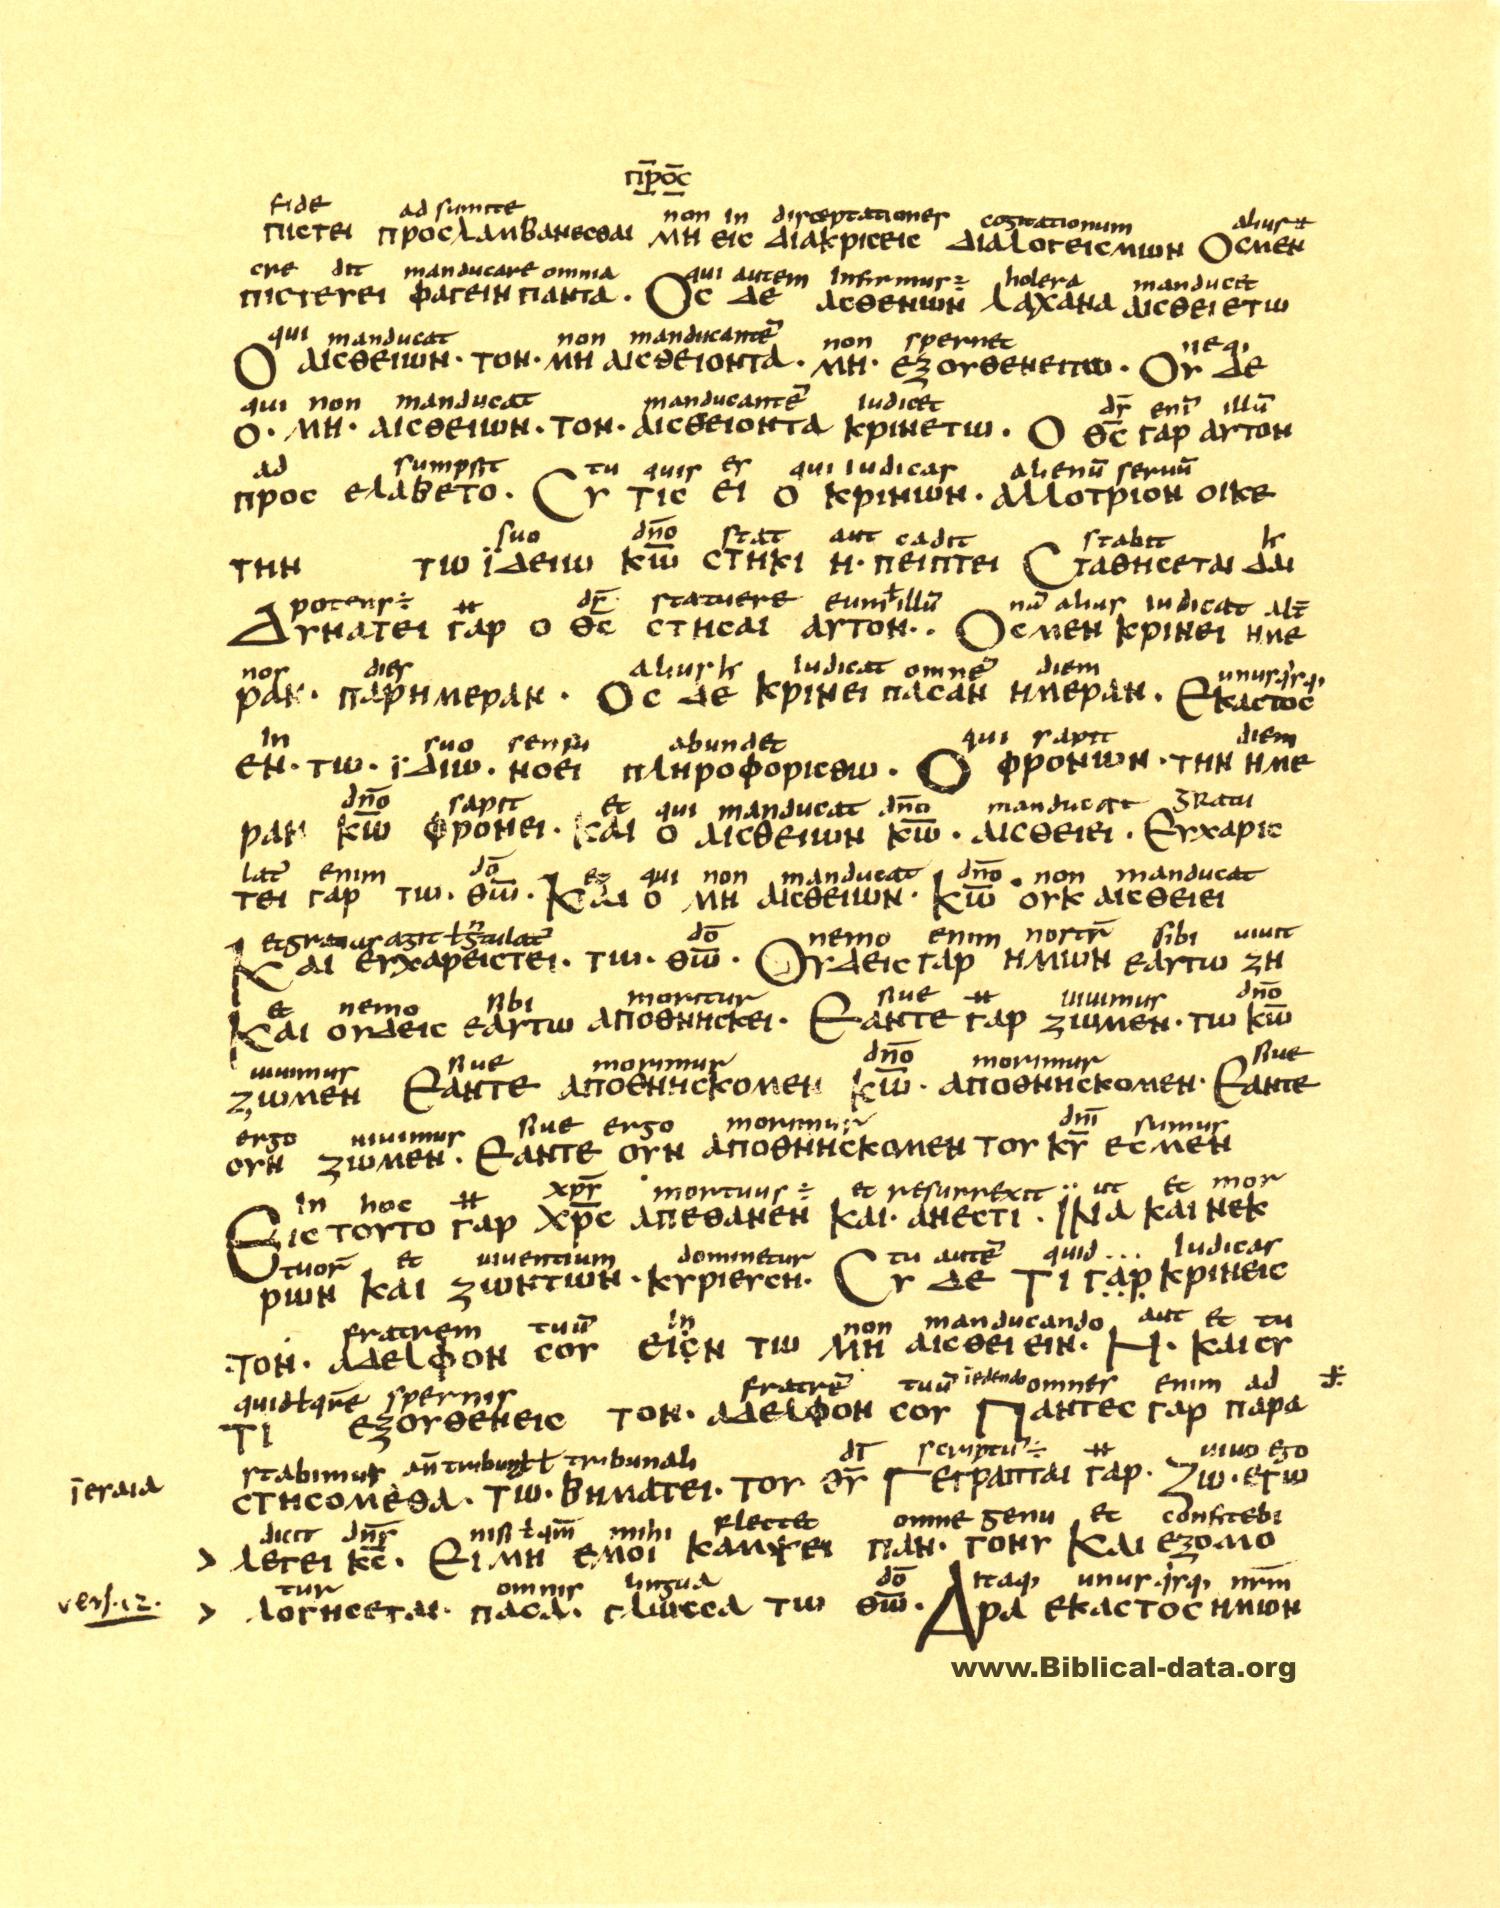 π̅ρ̅ο̅ς̅
fide ad sumite non in disceptationes cogitationum alius
πιστει προσλαμβανεσθαι μη εις διακρισεις διαλογεισμων Οσμεν
cre dit manducare omnia qui autem Infirmus÷ holera manducet
πιστευει φαγειν παντα · Ος δε ασθενων λαχανα αισθειετω
qui manducat non manducantē non spernet neq,
Ο αισθειων · τον · μη αισθειοντα · μη · εξουθενειτω · Ου δε
qui non manducat manducantē Iudicet ds̅ eni̅ illū
ο · μη · αισθειων · τον · αισθειοντα κρινετω · Ο θ̅ς̅ γαρ αυτον
ad sumpsit tu quis es qui Iudicas alienū seruū
προς ελαβετο · Συ τις ει ο κρινων · αλλοτριον οικε
suo dn̅o stat aut cadit stabit
την τω ϊδειω κ̅ω̅ στηκι η · πειπτει Σταθησεται δαι
potens÷ ds̅ statuere eum ł illū nā alius Iudicat alt̅
Δυνατει γαρ ο θ̅ς̅ στησαι αυτον · Οσμεν κρινει ημε
nos dies alius Iudicat omnē diem unusq̇sq,
ραν · παρημεραν · Ος δε κρινει πασαν ημεραν · Εκαστος
In suo sensu abundet qui sapit diem
εν · τω · ϊδιω · νοει πληροφορισθω · Ο φρονων · την ημε
dn̅o sapit et qui manducat dn̅o manducat gratu
ραν κ̅ω̅ φρονει · και ο αισθειων κ̅ω̅ · αισθειει · Ευχαρις
lat̄ enim dō et qui non manducat dn̅o non manducat
τει γαρ τω · θ̅ω̅ · Και ο μη αισθειων · κ̅ω̅ · ουκ αισθειει
et gratias agit dō nemo enim nostr̄ sibi uiuit
Και ευχαρειστει · τω · θ̅ω̅ · Ουδεις γαρ ημων εαυτω ζη
et nemo sibi moritur siue uiuimus dn̅o
Και ουδεις εαυτω αποθνησκει · Εαντε γαρ ζωμεν · τω κ̅ω̅
uiuimus siue morimur dn̅o morimur siue
ζωμεν Εαντε αποθνησκομεν κ̅ω̅ · αποθνησκομεν · Εαντε
ergo uiuimus siue ergo morimur dn̅i sumus
ουν ζωμεν · Εαντε ουν αποθνησκομεν του κ̅υ̅ εσμεν
In hoc xpr̅ mortuus÷ et resurrexit ut et mor
Εις τουτο γαρ χ̅ρ̅ς̅ απεθανεν και · ανεστι · ϊνα και νεκ
tuor̄ et uiuentium dominetur tu autē quid ... Iudicas
ρων και ζωντων · κυριευση · Συ δε τι γαρ κρινεις
fratrem tuū In non manducando aut et tu
τον · αδελφον σου εισ̣ν τω μη αισθειειν · Η · και συ
quid ł qr̄e spernis fratrē tuū ïedendo omnes enim ad
τι εξουθενεις τον · αδελφον σου Παντες γαρ παρα
stabimus tribunali dī scriptū÷ uiuo ego
ϊεραια στησομεθα · τω · βηματει · του θ̅υ̅ Γεγραπται γαρ · Ζω · εγω
dicit dn̄s nisi ł qm̄ mihi flectet omne genu et confitebi
> λεγει κ̅ς̅ · Ει μη εμοι καμψει παν · γονυ Και εξομο
tur omnis lingua dō Itaq, unusq̇sq, nrm̄
vers.12. > λογησεται · πασα · γλωσσα τω θ̅ω̅ · Αρα εκαστος ημων
www.Biblical-data.org